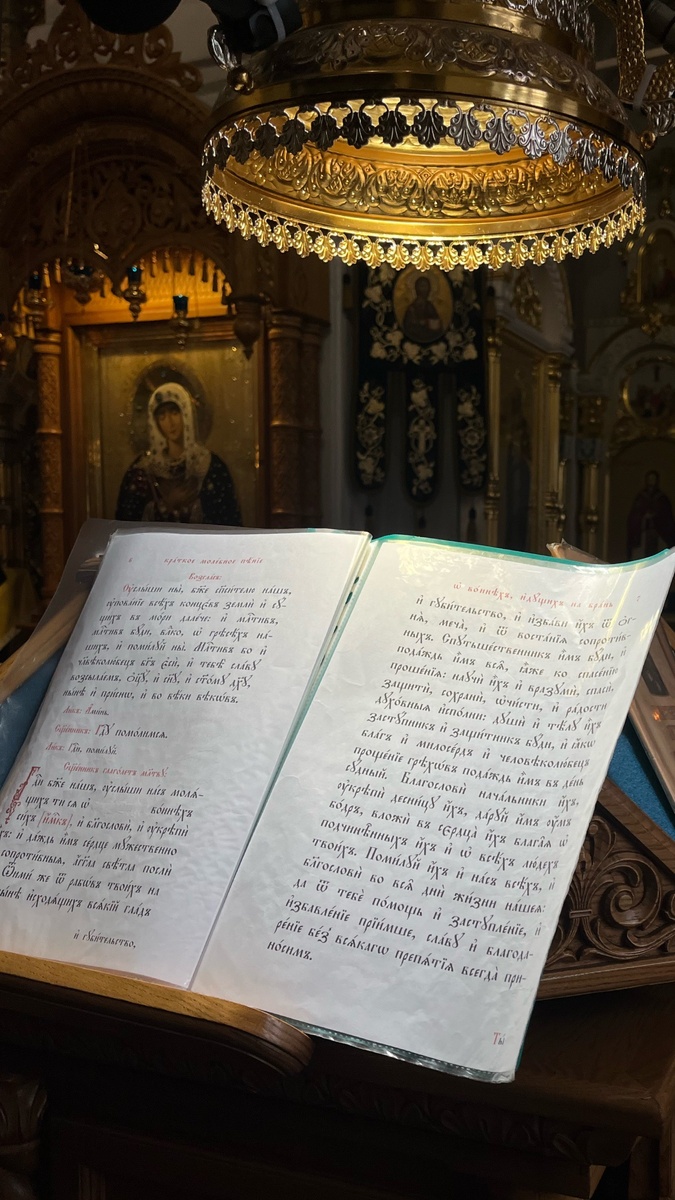 крⷶткое молебное пѣніе
Возгласъ:
Оу҆слы́ши ны̀, бж҃е сп҃си́телю на́шъ,
ᲂу҆пова́ніе всѣ́хъ конце́въ землѝ и҆ сꙋ́-
щихъ въ мо́ри дале́че: и҆ млⷭ҇тивъ,
млⷭ҇тивъ бꙋ́ди, влⷣко, ѡ҆ грѣсѣ́хъ на́-
шихъ, и҆ поми́лꙋй ны̀. Млⷭ҇тивъ бо и҆
чл҃вѣколю́бецъ бг҃ъ є҆сѝ, и҆ тебѣ̀ сла́вꙋ
возсыла́емъ, ѻ҆ц҃ꙋ̀, и҆ сн҃ꙋ, и҆ ст҃о́мꙋ дх҃ꙋ,
ны́нѣ и҆ при́снѡ, и҆ во вѣ́ки вѣкѡ́въ.
Ли́къ: А҆ми́нь.
Сщ҃е́нникъ: Гдⷭ҇ꙋ помо́лимсѧ.
Ли́къ: Гдⷭ҇и, поми́лꙋй.
Сщ҃е́нникъ глаго́летъ мл҃твꙋ:
Гдⷭ҇и бж҃е на́шъ, ᲂу҆слы́ши на́съ молѧ́-
щихъ ти сѧ ѡ҆ во́инѣхъ
си́хъ [и҆́мкъ], и҆ благословѝ, и҆ ᲂу҆крѣпѝ
и҆̀хъ: и҆ да́ждь и҆̀мъ се́рдце мꙋ́жественно
сопроти̑вныѧ, а҆́гг҃ла свѣ́тла послѝ
Ѿимѝ же ѿ рабѡ́въ твои́хъ на
ны́нѣ и҆сходѧ́щихъ всѧ́кїй гла́дъ
и҆ гꙋби́тельство,
ѡ҆ во́инѣхъ, и҆дꙋ́щихъ на бра́нь 7
и҆ гꙋби́тельство, и҆ и҆зба́ви и҆̀хъ ѿ ѻ҆г-
нѧ̀, меча̀, и҆ ѿ воста́нїѧ сопроти́в-
ныхъ. Спꙋтьше́ственникъ и҆̀мъ бꙋ́ди, и҆
пода́ждь и҆̀мъ всѧ̑, ꙗ҆̀же ко спасе́нїю
проше́нїѧ: наꙋчѝ и҆̀хъ и҆ вразꙋмѝ, спасѝ,
защитѝ, сохранѝ, ѡ҆чи́сти, и҆ ра́дости
дꙋхо́вныѧ и҆спо́лни: дꙋшѝ и҆ тѣ́лꙋ и҆́хъ
застꙋ́пникъ и҆ защи́тникъ бꙋ́ди, и҆ ꙗ҆́кѡ
бла́гъ и҆ милосе́рдъ и҆ человѣколю́бецъ
проще́нїе грѣхѡ́въ пода́ждь и҆̀мъ въ де́нь
сꙋ́дный. Благословѝ нача́льники и҆́хъ,
ᲂу҆крѣпѝ десни́цꙋ и҆́хъ, да́рꙋй и҆̀мъ ᲂу҆́мъ
бо́дръ, вложѝ въ сердца̀ и҆́хъ блага̑ѧ ѡ҆
подчине́нныхъ и҆́хъ и҆ ѡ҆ всѣ́хъ лю́дехъ
твои́хъ. Поми́лꙋй и҆̀хъ и҆ на́съ всѣ́хъ, и҆
благословѝ во всѧ̑ дни̑ жи́зни на́шеѧ:
да ѿ тебє̀ по́мощь и҆ застꙋпле́нїе, и҆
и҆збавле́нїе прїи́мше, сла́вꙋ и҆ благода-
ре́нїе бе́з̾ всѧ́кагѡ препѧ́тїѧ всегда̀ при-
но́симъ.
Ты̀